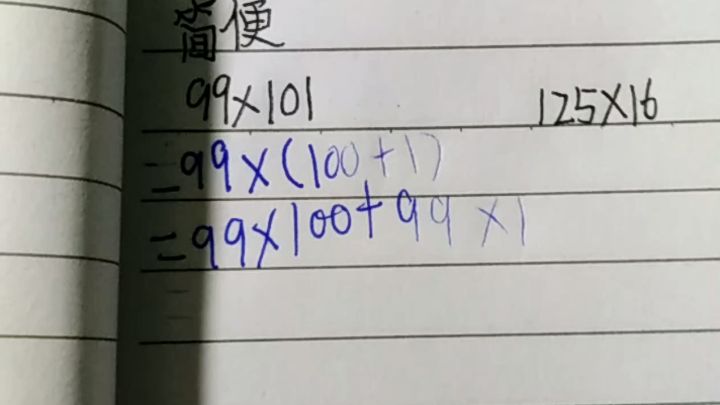 简便
99×101 125×16
=99×(100+1)
=99×100+99×1
=